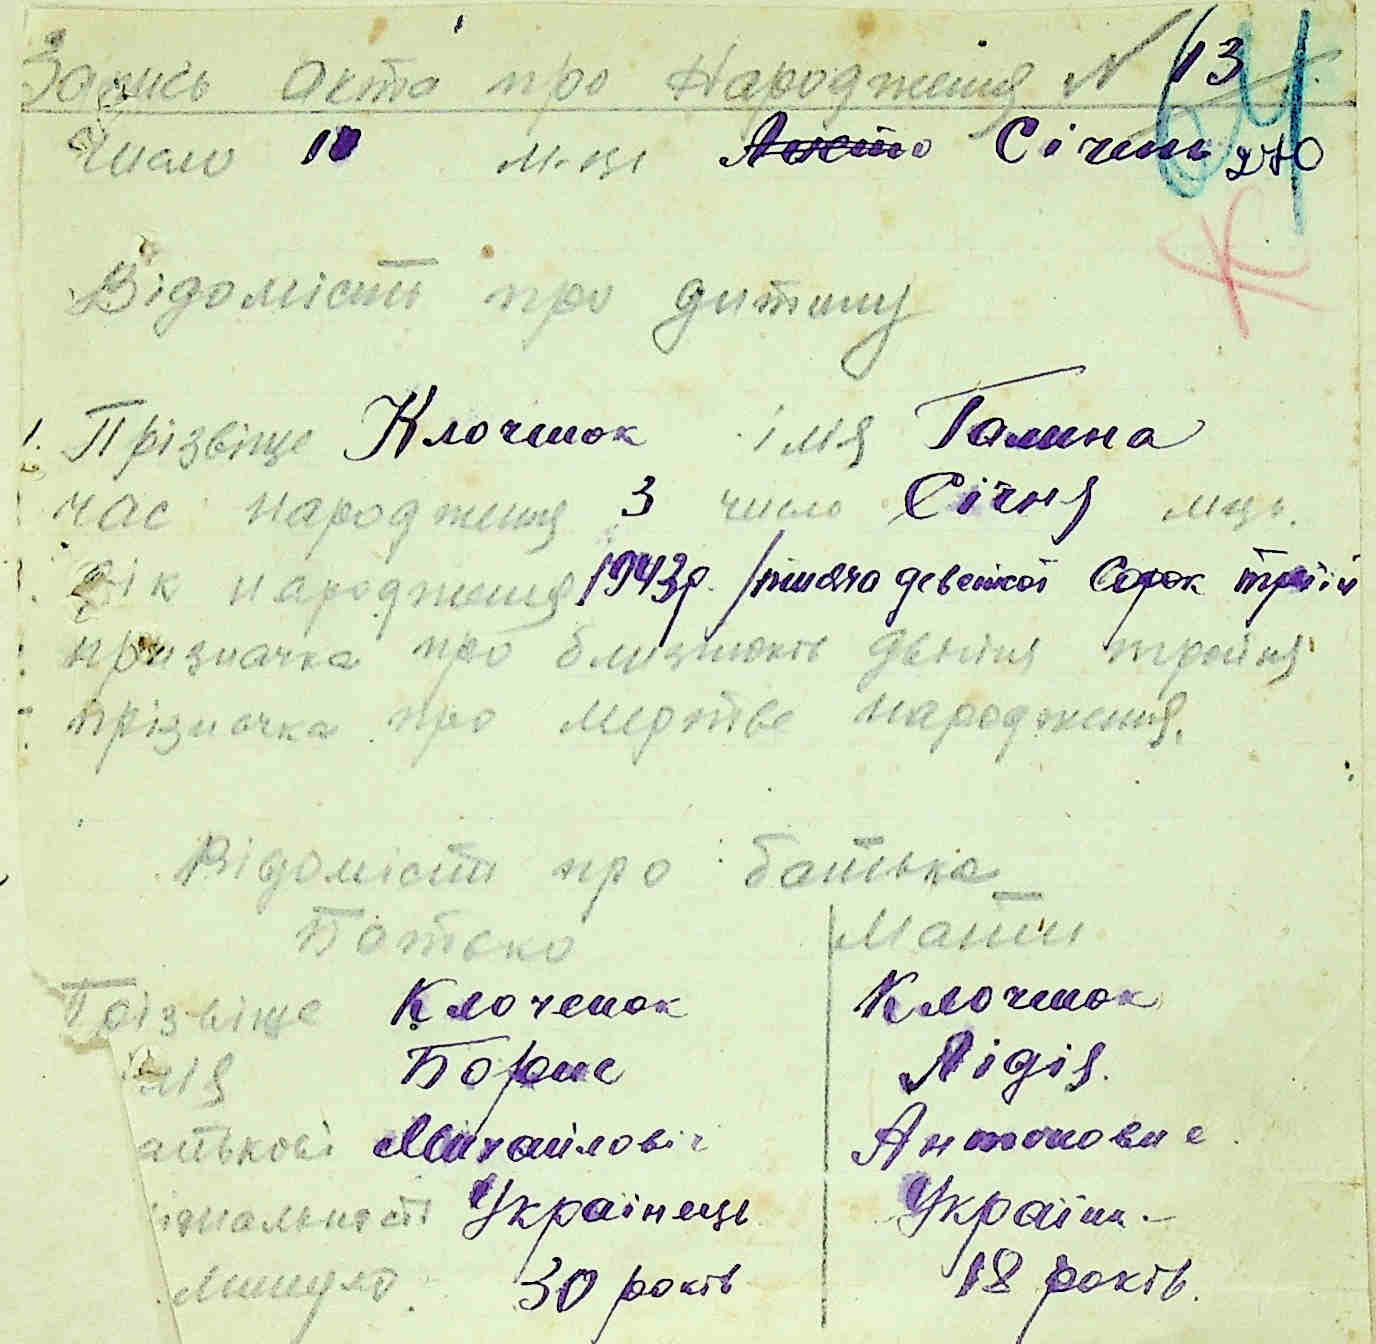 Запись Акта про Народження N 13
число 10 м-ця Січень 270
Відомість про дитину
1. Прізвіще Клоченок імя Галина
час народження 3 число Січня мць.
Рік народження 1943р. /тисяча девятсот Сорок трітій
призначка про близнюків двійня тройня
прізначка про мертве народження.
Відомісти про батька
Батько Мати
Прізвіще Клоченок Клоченок
імя Борис Лідія.
атькові Михайловіч Антоновна
іональності Украінець Україн.-
минуло 30 років 18 років.